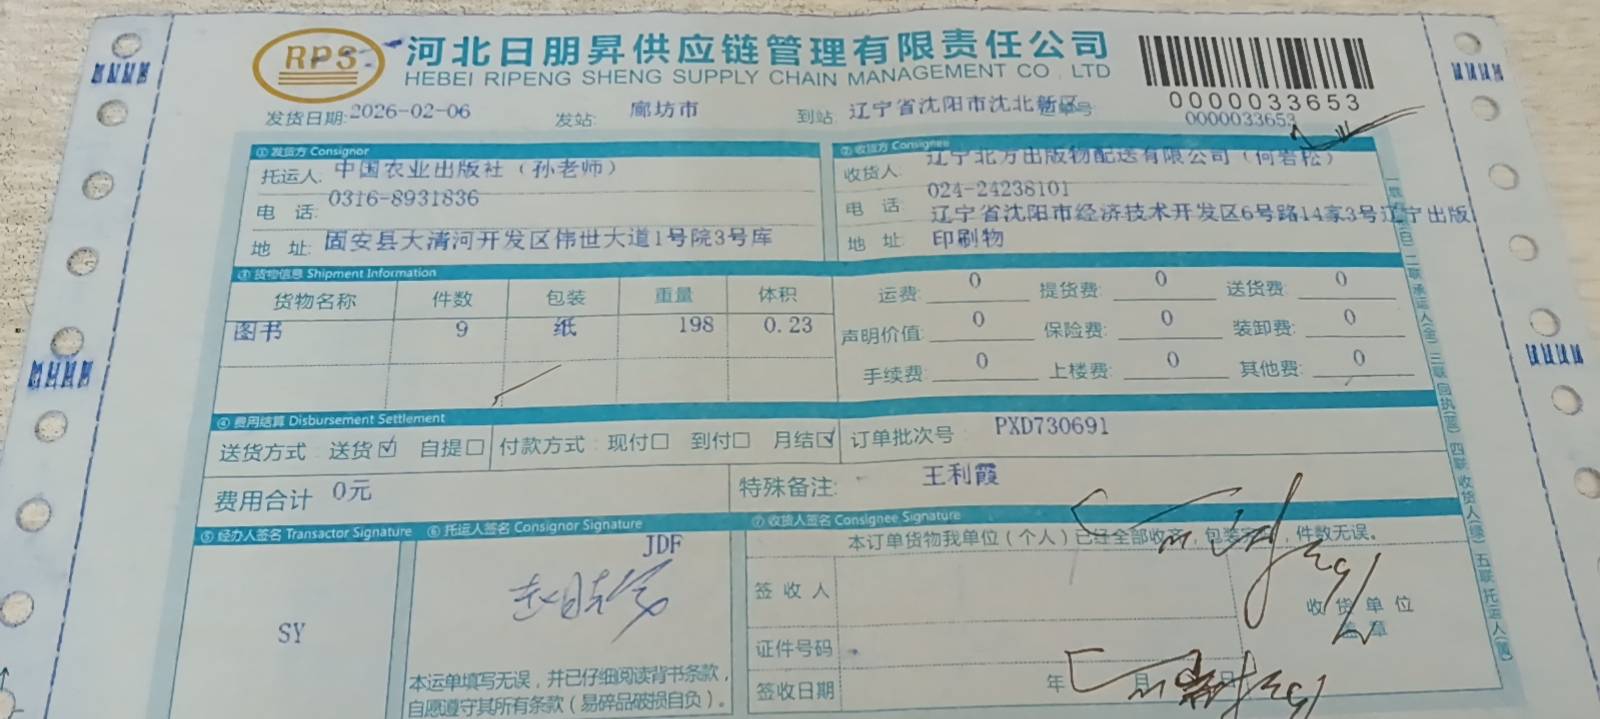 RPS
河北日朋昇供应链管理有限责任公司
HEBEI RIPENG SHENG SUPPLY CHAIN MANAGEMENT CO., LTD
0000033653
发货日期:2026-02-06 发站: 廊坊市 到站: 辽宁省沈阳市沈北新区 运单号 0000033653
① 发货方 Consignor
托运人: 中国农业出版社（孙老师）
电 话: 0316-8931836
地 址: 固安县大清河开发区伟世大道1号院3号库
② 收货方 Consignee
收货人: 辽宁北方出版物配送有限公司（何岩松）
电 话: 024-24238101
辽宁省沈阳市经济技术开发区6号路14家3号辽宁出版
地 址: 印刷物
③ 货物信息 Shipment Information
货物名称 件数 包装 重量 体积
图书 9 纸 198 0.23
运费: 0 提货费: 0 送货费: 0
声明价值: 0 保险费: 0 装卸费: 0
手续费: 0 上楼费: 0 其他费: 0
④ 费用结算 Disbursement Settlement
送货方式: 送货☑ 自提☐ 付款方式: 现付☐ 到付☐ 月结☑ 订单批次号 PXD730691
费用合计 0元 特殊备注: 王利霞
⑤ 经办人签名 Transactor Signature
SY
⑥ 托运人签名 Consignor Signature
JDF
本运单填写无误，并已仔细阅读背书条款，
自愿遵守其所有条款（易碎品破损自负）。
⑦ 收货人签名 Consignee Signature
本订单货物我单位（个人）已经全部收齐，包装完，件数无误。
签 收 人
证件号码
签收日期 年 月 日
收 货 单 位
盖 章
二联承运人(金) 三联 自执(蓝) 四联 收货人(绿) 五联托运人(黄)